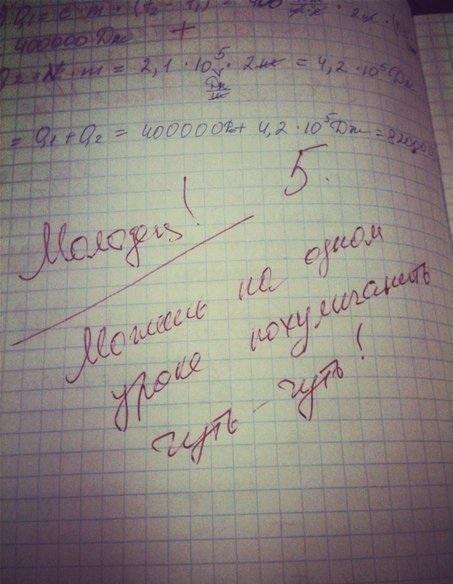 Q₁ = c · m · (t₂ - t₁) = 400 · 2
400000 Дж +
· m = 2,1 · 10⁵ · 2 кг = 4,2 · 10⁵ Дж
Дж
кг
= Q₁ + Q₂ = 400000 Дж + 4,2 · 10⁵ Дж = 82000
5.
Молодец!
Можешь на одном
уроке похулиганить
чуть-чуть!